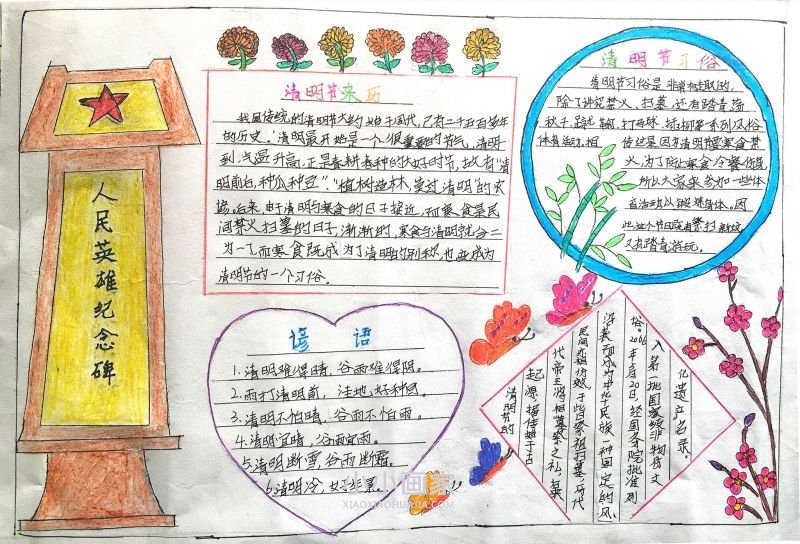 人民英雄纪念碑
清明节来历
我国传统的清明节大约始于周代,已有二千五百多年
的历史。清明最开始是一个很重要的节气,清明一
到,气温升高,正是春耕春种的大好时节,故有"清
明前后,种瓜种豆"。"植树造林,莫过清明"的农
谚。后来,由于清明与寒食的日子接近,而寒食是民
间禁火扫墓的日子,渐渐的,寒食与清明就合二
为一了,而寒食既成为了清明的别称,也变成为
清明节的一个习俗。
清明节习俗
清明节习俗是非常有趣的,
除了讲究禁火、扫墓,还有踏青、荡
秋千、蹴鞠、打马球、插柳等系列风俗
体育活动。相传这是因为清明节要寒食禁
火,为了防止寒食冷餐伤身,
所以大家来参加一些体
育活动,以锻炼身体。因
此,这个节日既有祭扫
又有踏青游玩。
谚语
1.清明难得晴,谷雨难得阴。
2.雨打清明前,洼地好种田。
3.清明不怕晴,谷雨不怕雨。
4.清明宜晴,谷雨宜雨。
5.清明断雪,谷雨断霜。
6.清明冷,好年景。
清明节的
起源,据传始于古
代帝王将相墓祭之礼,后来
民间亦相仿效,于此日祭祖扫墓,历代
沿袭而成为中华民族一种固定的风
俗。2006年5月20日,经国务院批准列
入第一批国家级非物质文
化遗产名录。
小小画家
XIAOXIAOHUAJIA.COM